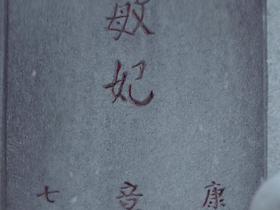 敏妃
康
七